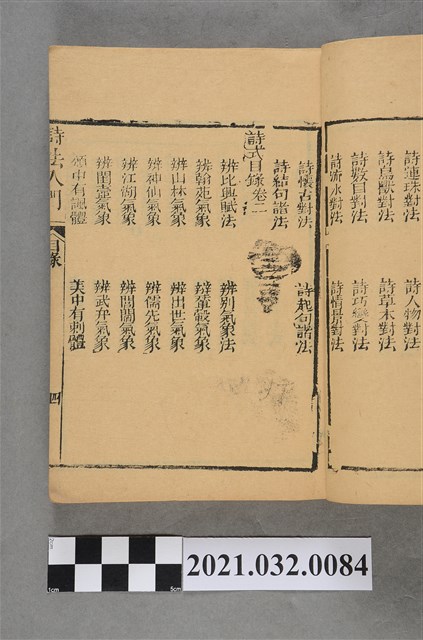 詩連珠對法
詩人物對法
詩鳥獸對法
詩草木對法
詩數目對法
詩巧變對法
詩流水對法
詩情景對法
詩懷古對法
詩起句諸法
詩結句諸法
詩式目錄卷二
辨比興賦法
辨別氣象法
辨翰苑氣象
辨輦轂氣象
辨山林氣象
辨出世氣象
辨神仙氣象
辨儒先氣象
辨江湖氣象
辨閭閻氣象
辨閨壼氣象
辨武弁氣象
頌中有諷體
美中有刺體
詩法入門
目錄
四
1cm
5cm
2021.032.0084